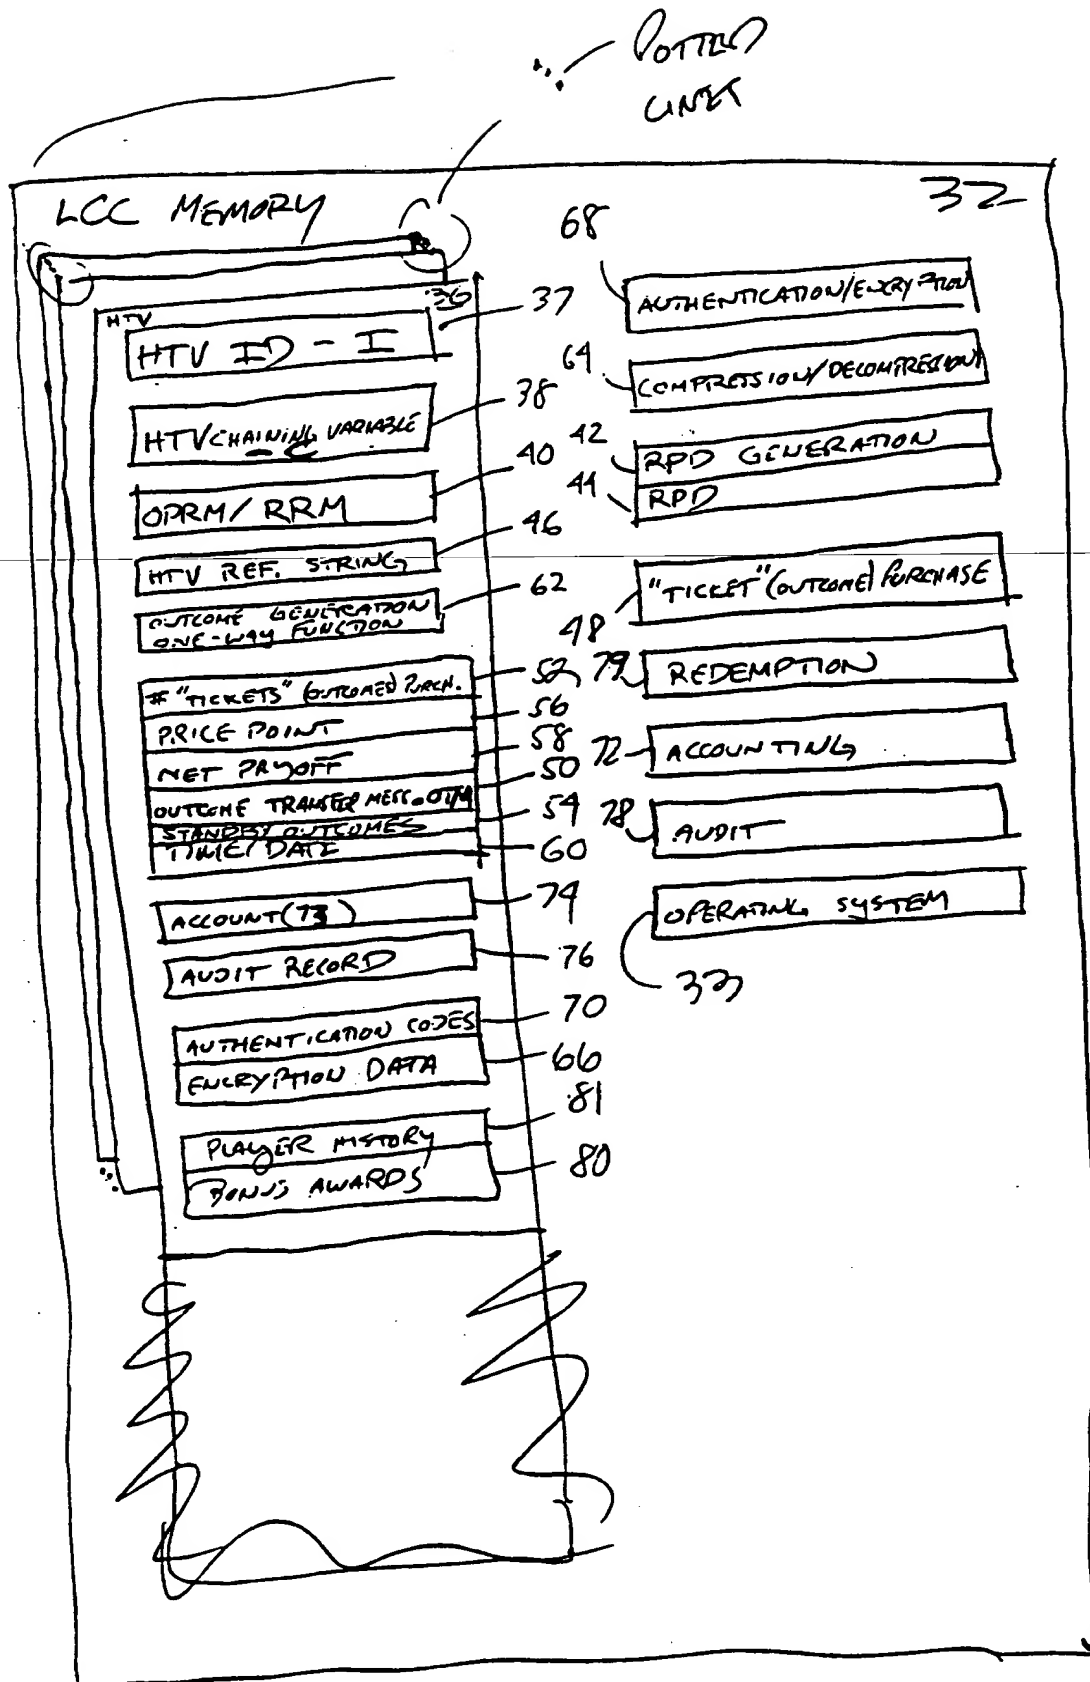 DOTTED
LINES
LCC MEMORY
32
HTV
36
HTV ID - I
37
HTV CHAINING VARIABLE
38
OPRM/RRM
40
HTV REF. STRING
46
OUTCOME GENERATION
ONE-WAY FUNCTION
62
# "TICKETS" (OUTCOMES) PURCH.
52
PRICE POINT
56
NET PAYOFF
58
OUTCOME TRANSFER MESS.
50
STANDBY OUTCOMES
54
TIME/DATE
60
ACCOUNT (73)
74
AUDIT RECORD
76
AUTHENTICATION CODES
70
ENCRYPTION DATA
66
PLAYER HISTORY
81
BONUS AWARDS
80
68
AUTHENTICATION/ENCRYPTION
64
COMPRESSION/DECOMPRESSION
42
RPD GENERATION
44
RPD
"TICKET" (OUTCOME) PURCHASE
48
79
REDEMPTION
72
ACCOUNTING
78
AUDIT
OPERATING SYSTEM
33